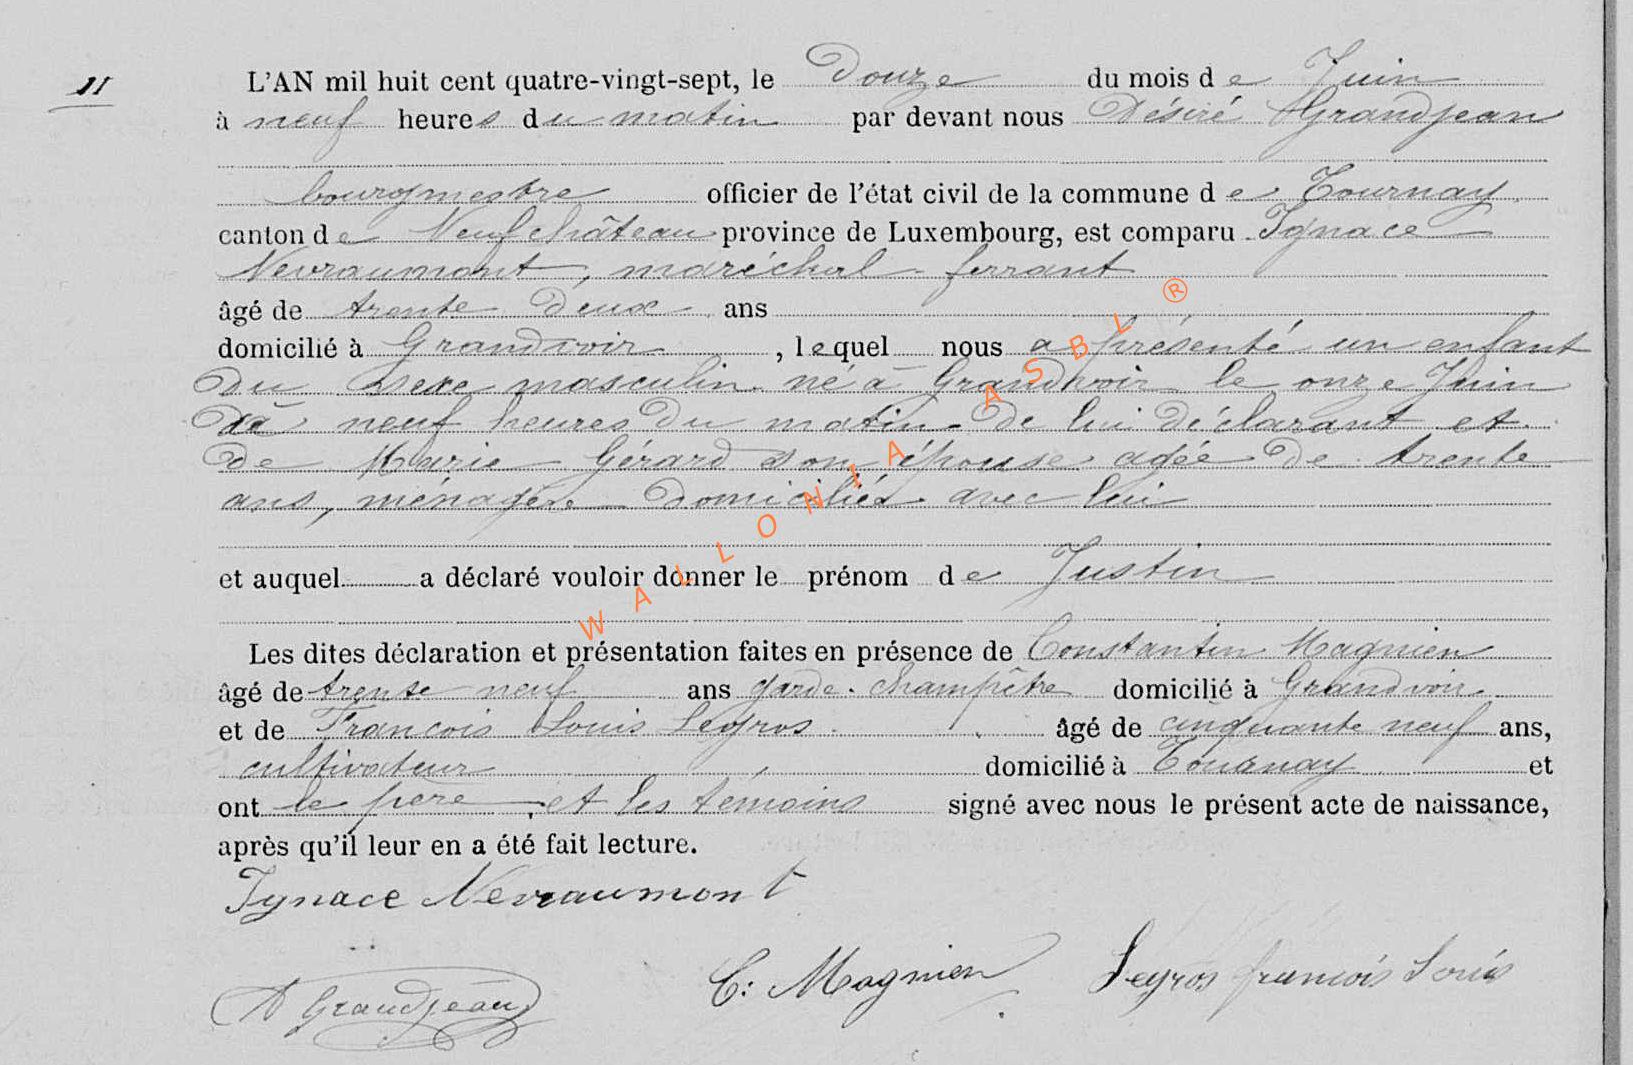 11
L'AN mil huit cent quatre-vingt-sept, le Douze du mois de Juin
à neuf heures du matin par devant nous Désiré Grandjean
bourgmestre officier de l'état civil de la commune de Tournay
canton de Neufchâteau province de Luxembourg, est comparu Ignace
Nevraumont, maréchal ferrant
âgé de trente deux ans
domicilié à Grandvoir, lequel nous a présenté un enfant
du sexe masculin né à Grandvoir le onze Juin
à neuf heures du matin de lui déclarant et
de Marie Gérard son épouse agée de trente
ans, ménagère domiciliée avec lui
et auquel a déclaré vouloir donner le prénom de Justin
Les dites déclaration et présentation faites en présence de Constantin Magnien
âgé de trente neuf ans garde-champêtre domicilié à Grandvoir
et de François Louis Legros âgé de cinquante neuf ans,
cultivateur domicilié à Tournay et
ont le père et les témoins signé avec nous le présent acte de naissance,
après qu'il leur en a été fait lecture.
Ignace Nevraumont
D Grandjean C: Magnien Legros francois Louis
WALLONIA ASBL ®